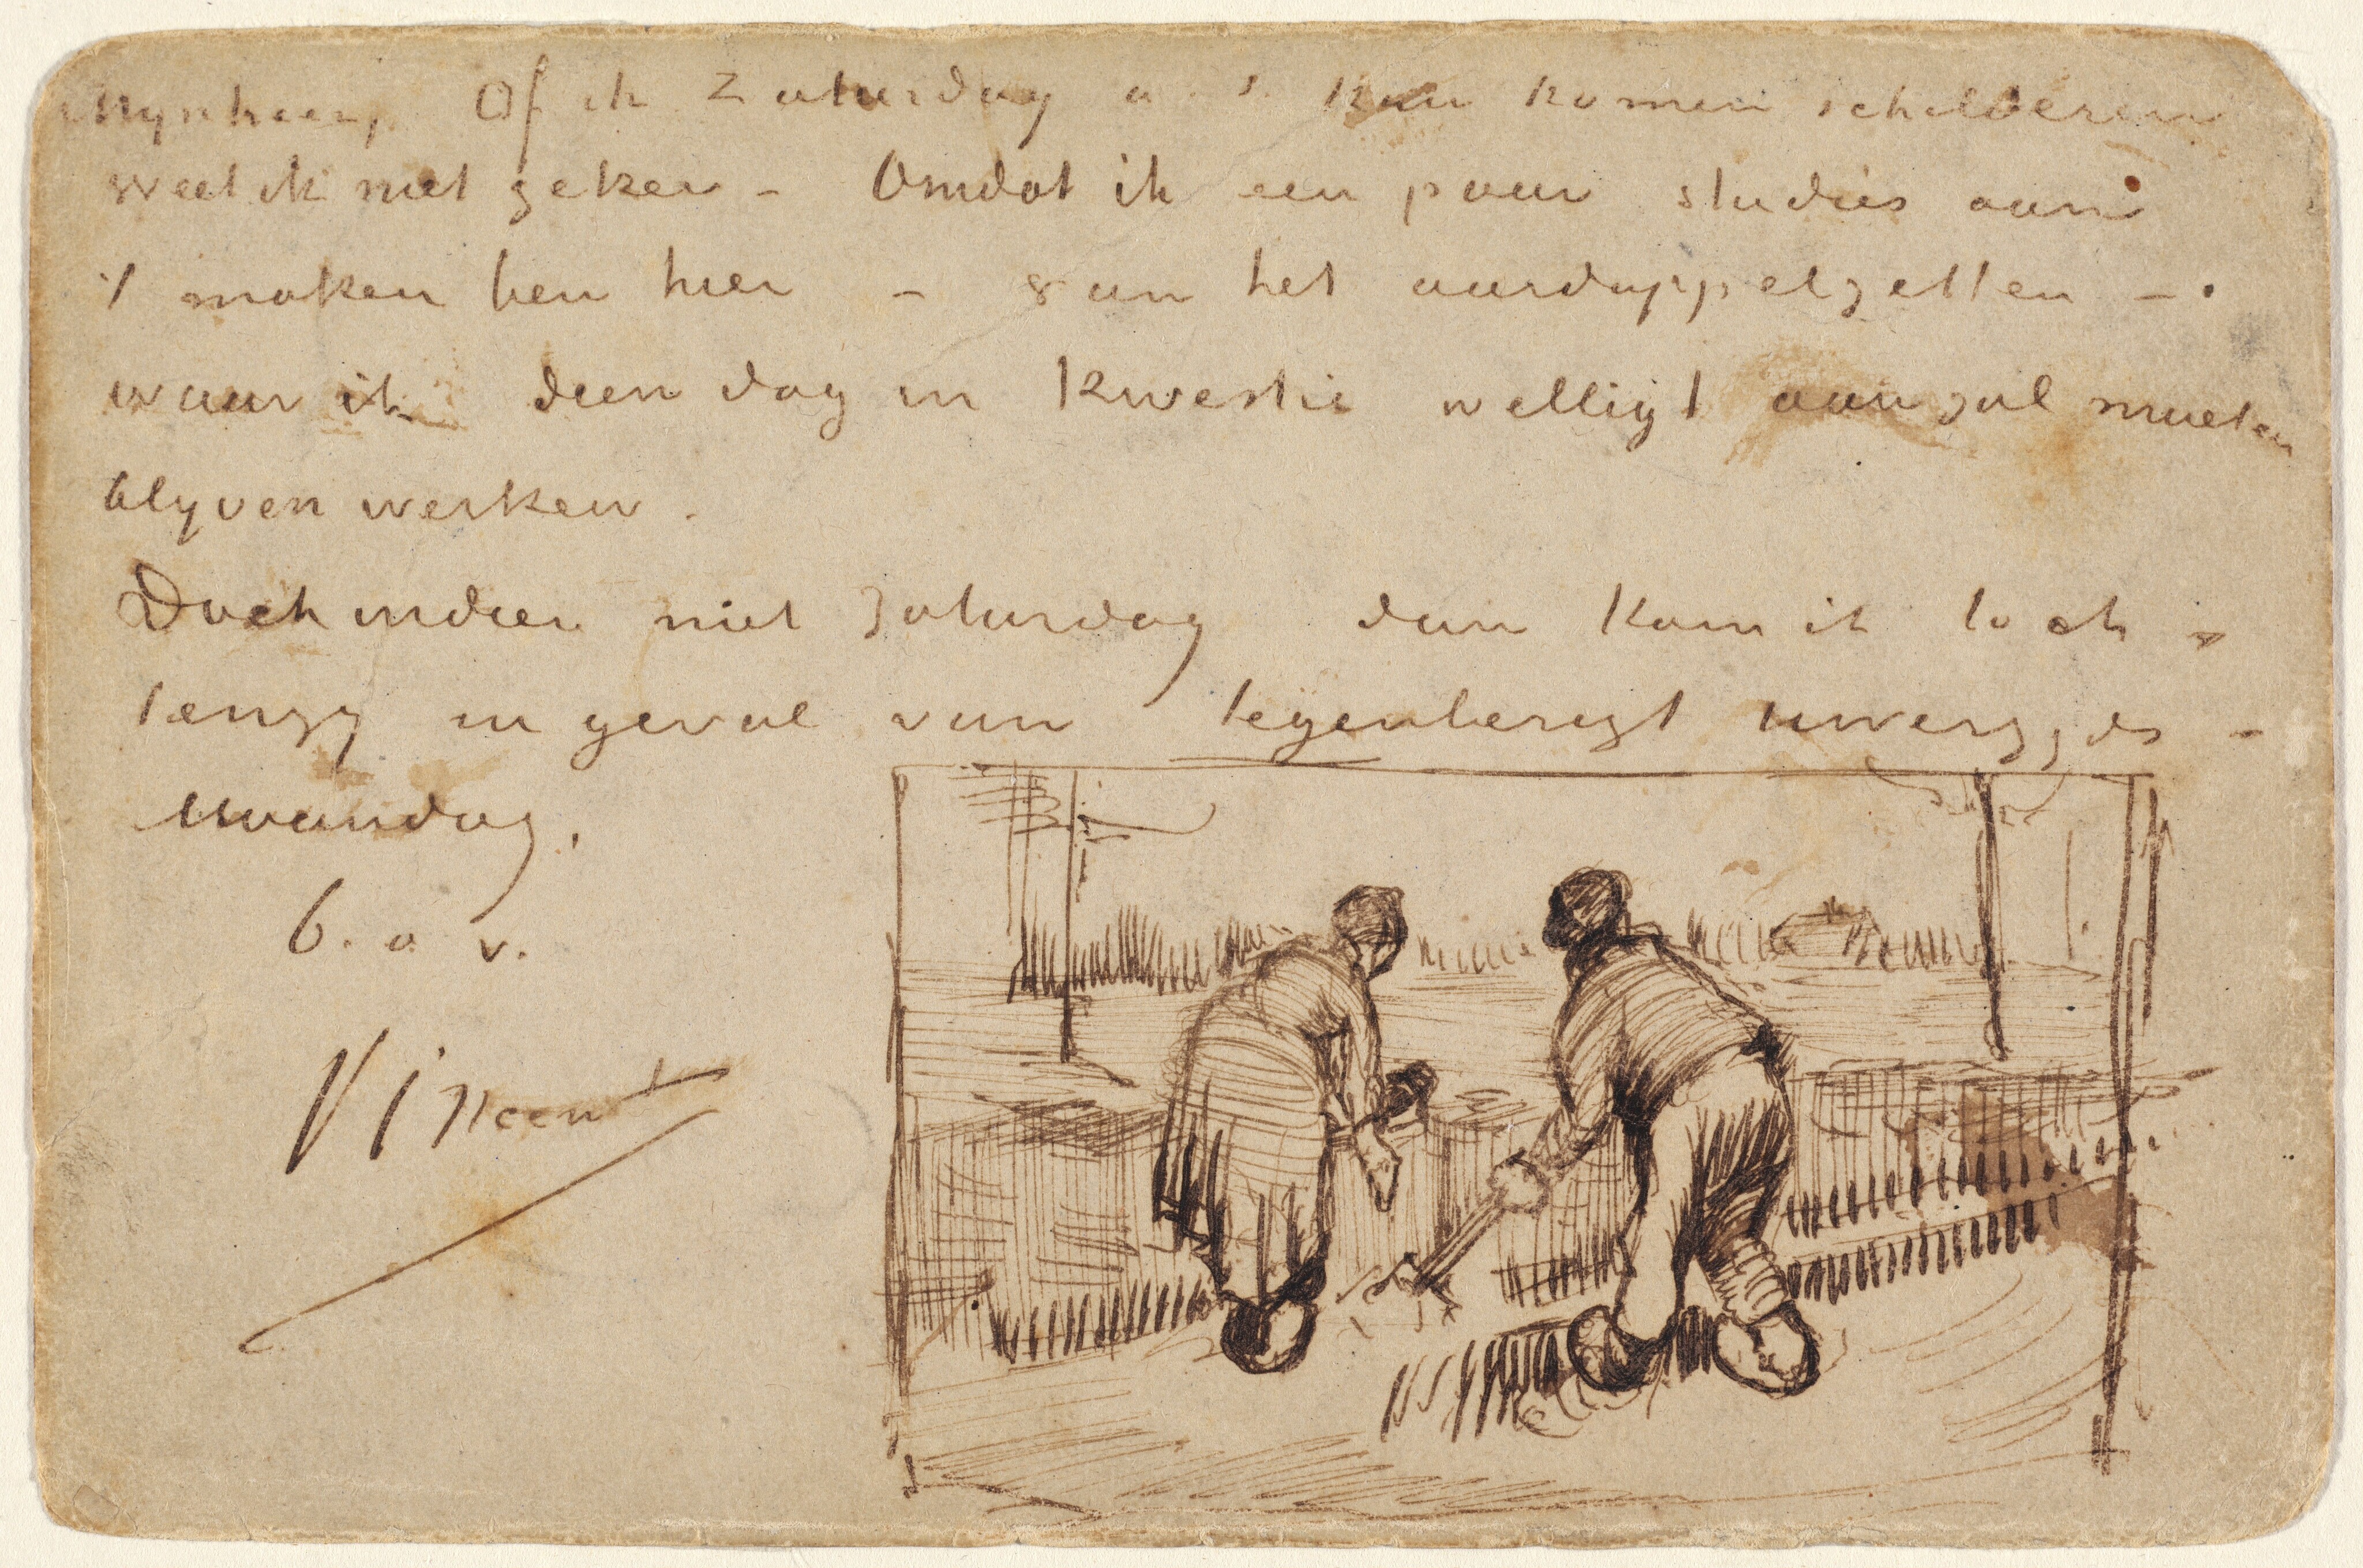 Mynheer, Of ik Zaturdag a. s. kan komen schilderen
weet ik niet zeker – Omdat ik een paar studies aan
't maken ben hier – van het aardappelzetten –.
waar ik dien dag in kwestie welligt aan zal moeten
blyven werken.
Doch indien niet Zaturdag dan kom ik toch –
tenzy in geval van tegenberigt uwerzyds –
Maandag.
b. a v.
Vincent